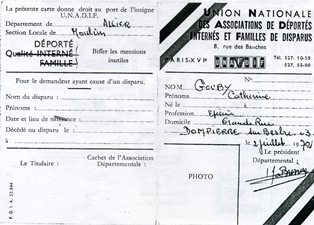 La présente carte donne droit au port de l'insigne
U.N.A.D.I.F.
Département de ALLIER
Section Locale de Moulins
DÉPORTÉ
Qualité INTERNÉ
FAMILLE
Biffer les mentions
inutiles
Pour le demandeur ayant cause d'un disparu.
Nom du disparu :
Prénoms :
Date et lieu de naissance :
Décédé ou disparu le :
à
Le Titulaire :
Cachet de l'Association
Départementale :
UNION NATIONALE
DES ASSOCIATIONS DE DÉPORTÉS
INTERNÉS ET FAMILLES DE DISPARUS
8, rue des Bauches
PARIS-XVIe
Tél. 527, 10-58
527, 55-00
NOM GOUBY
Prénoms Catherine
Né le à
Profession
Domicile Grande Rue
DOMPIERRE sur Besbre 03
le 2 juillet 1970
Le président
Départemental :
PHOTO